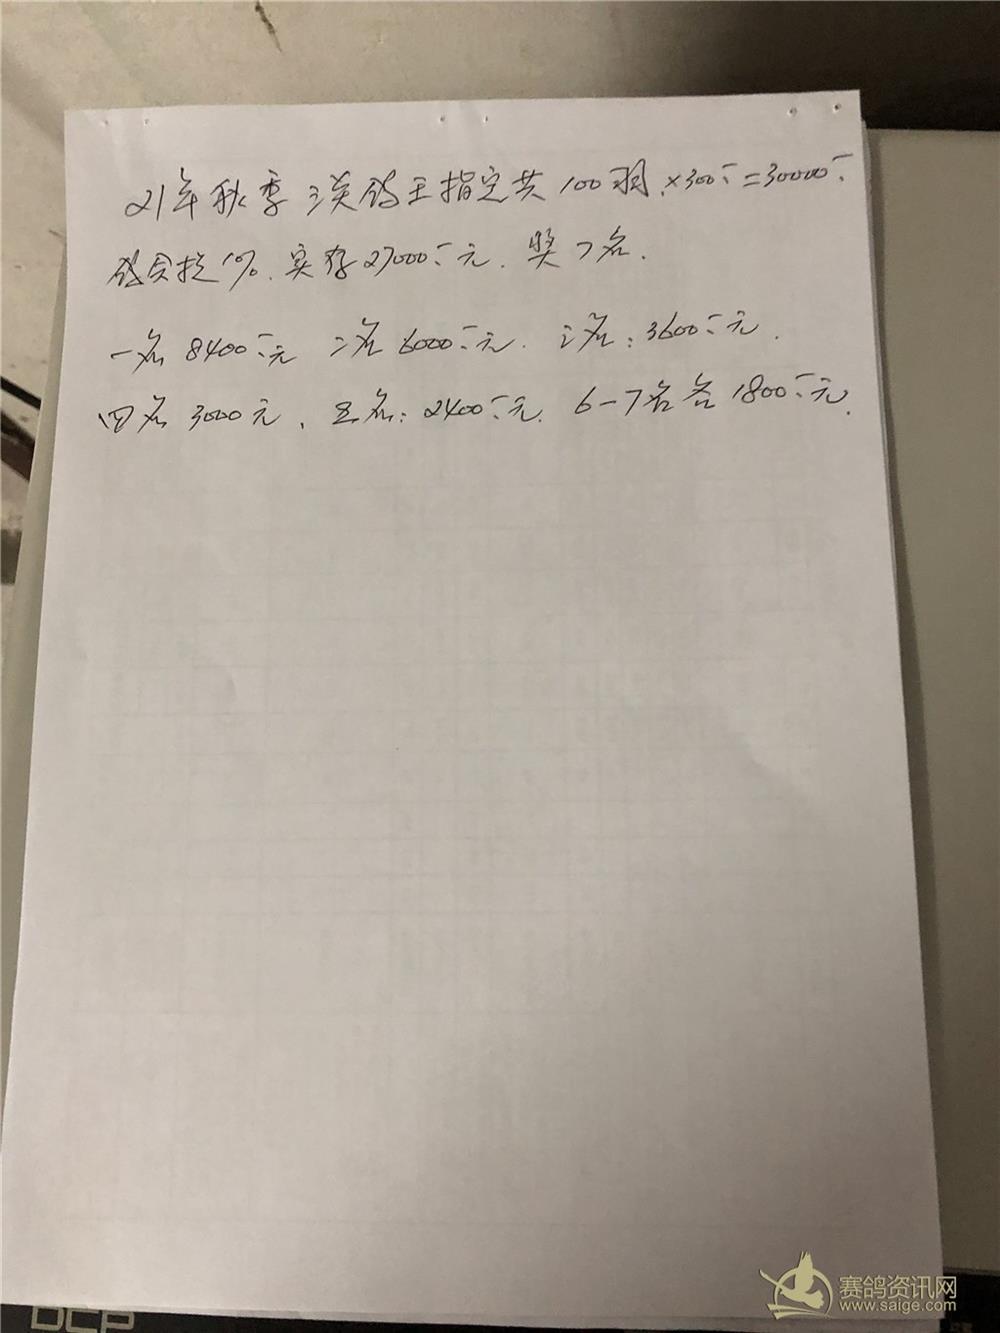 21年秋季三关鸽王指定共100羽.×300元=30000元
鸽会提10%.实存27000元.奖7名.
一名8400元 二名6000元.三名:3600元.
四名3000元、五名:2400元.6-7名各1800元.
赛鸽资讯网
www.saige.com
DCP